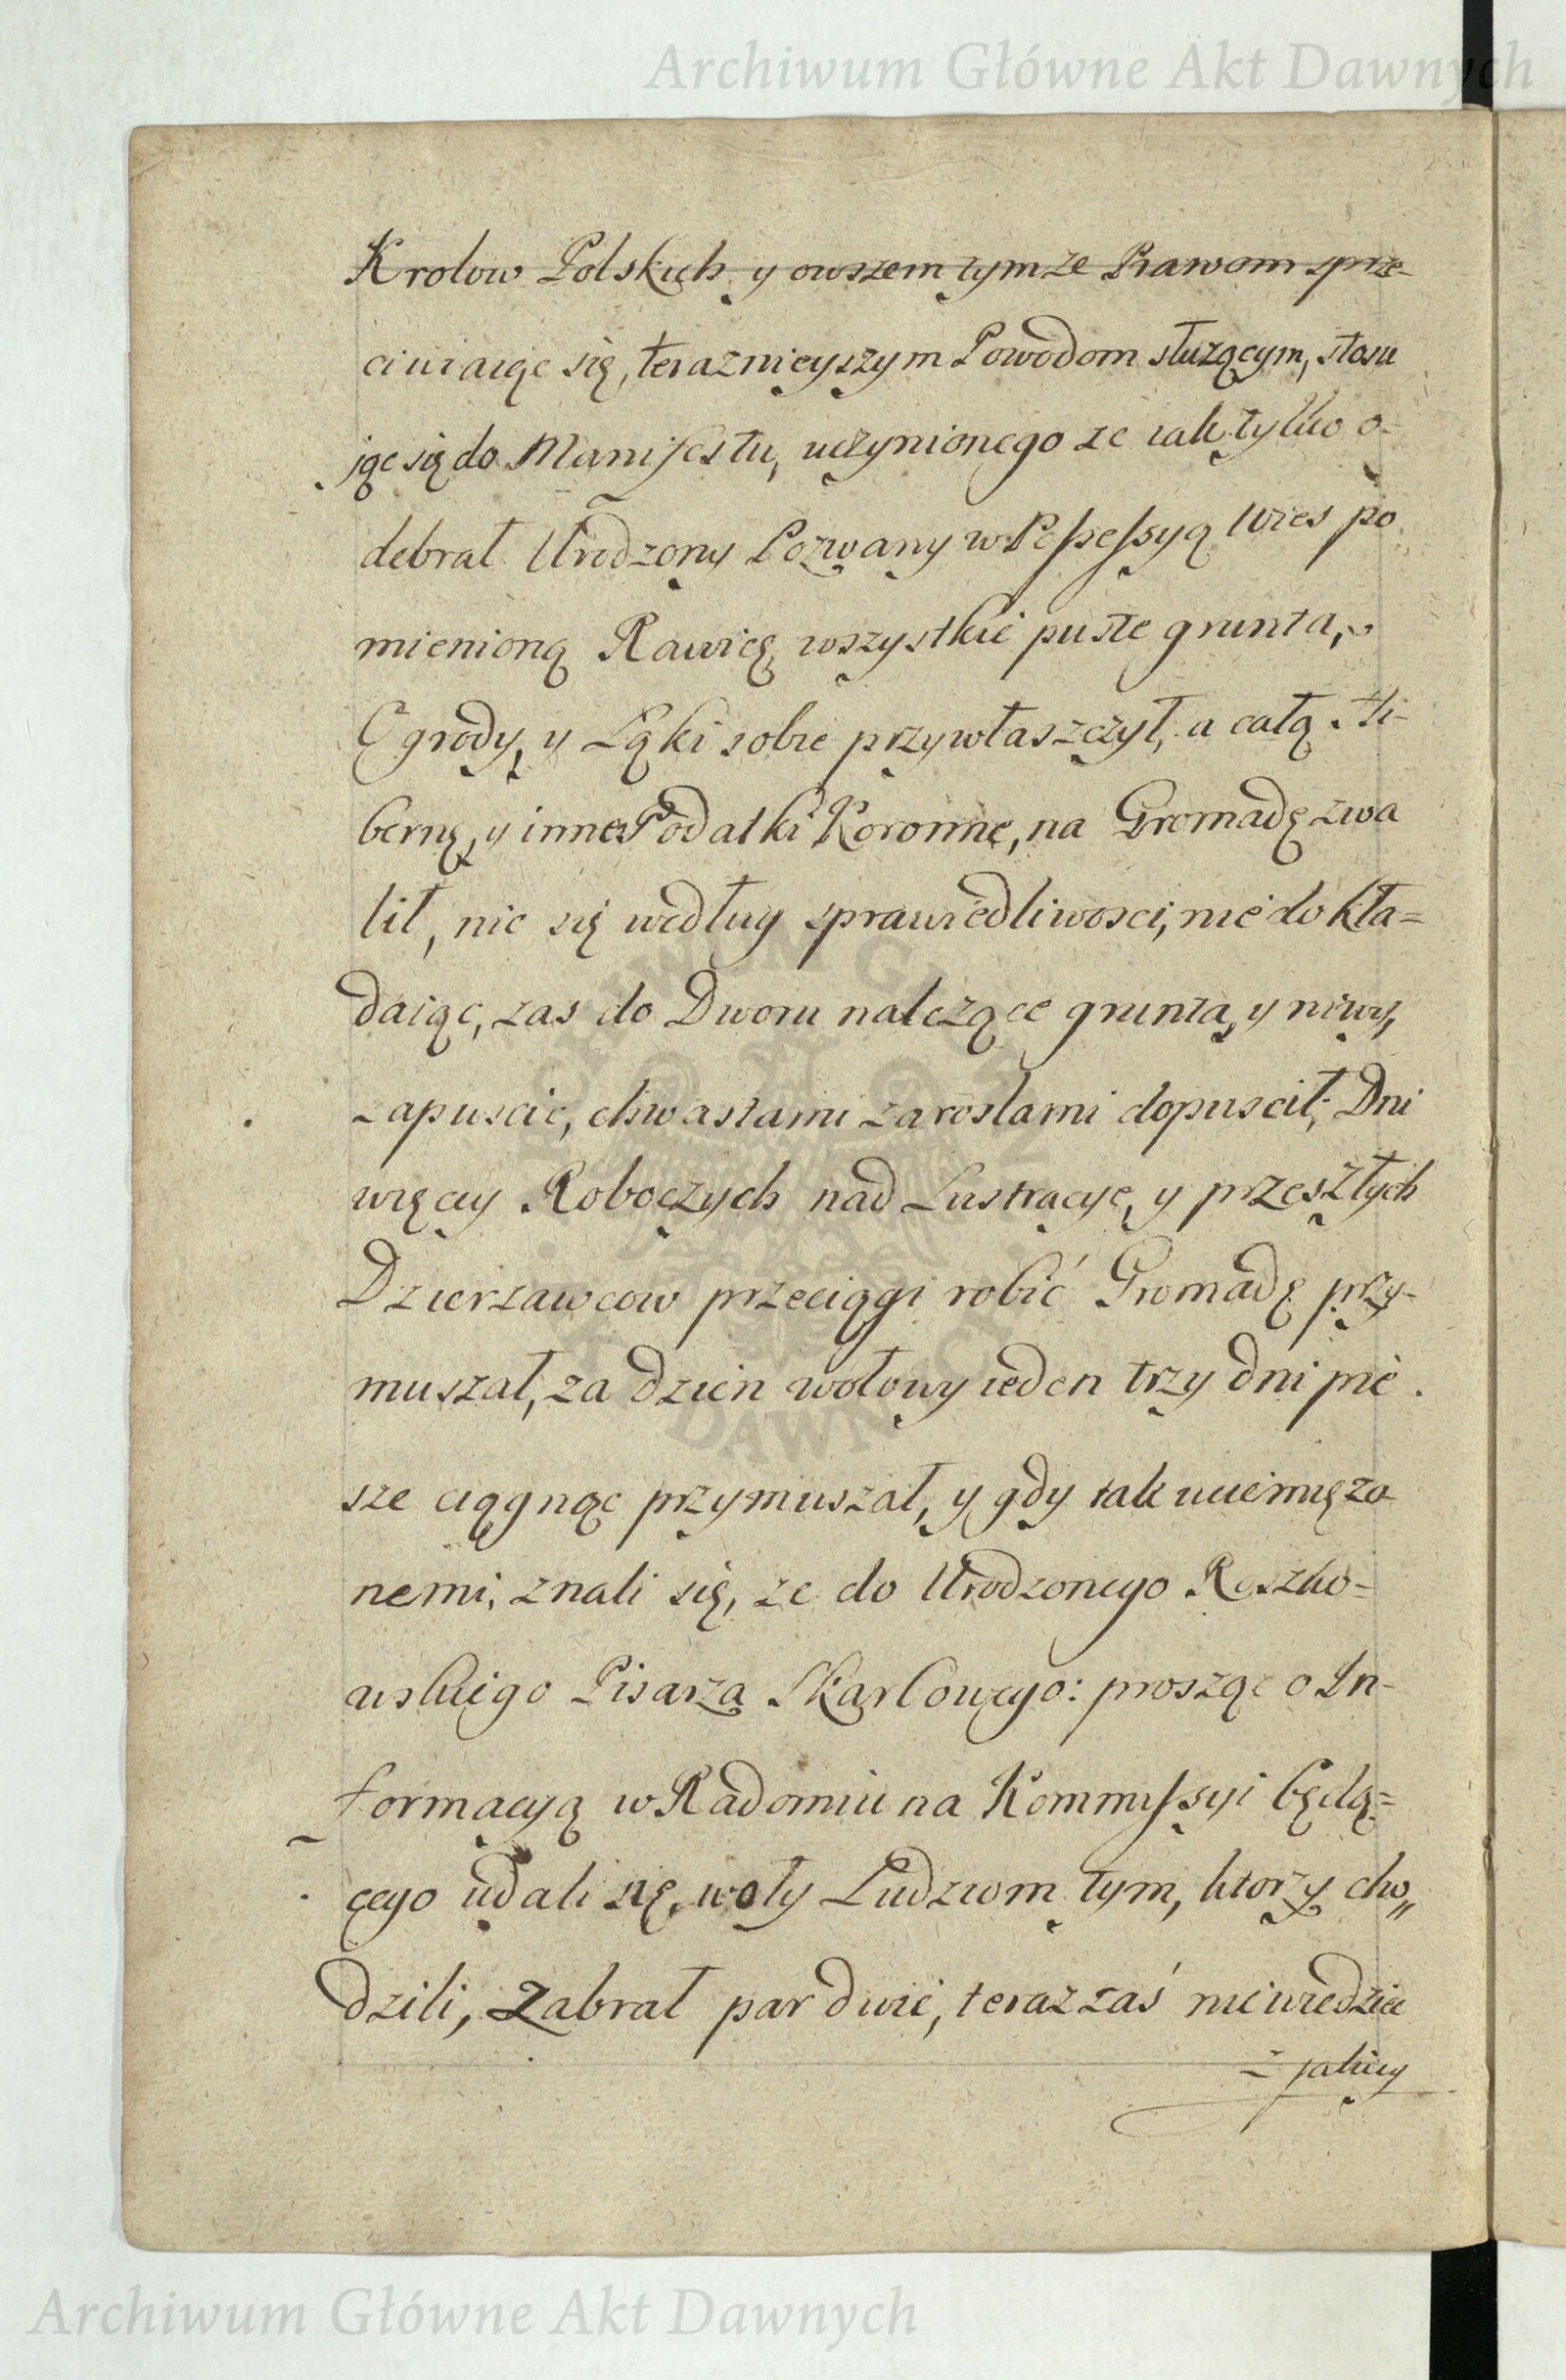 Archiwum Główne Akt Dawnych
Krolow Polskich y owszem tymze Prawom sprze-
ciwiaiąc się, teraznieyszym Powodom służącym, stosu
jąc się do Manifestu, uczynionego ze iak tylko o-
debrał Urodzony Pozwany w Possessyą Wies po
mienioną Rawicę wszystkie puste grunta,
Ogrody, y Łąki sobie przywłaszczył, a całą Hi-
bernę, y inne Podatki Koronne, na Gromadę zwa
lił, nic się według sprawiedliwosci, nie dokła=
daiąc, zas do Dworu nalezące grunta, y niwy,
zapuscic, chwastami zaroslami dopuscił, Dni
więcey Roboczych nad Lustracye, y przeszłych
Dzierzawcow przeciągi robić Gromadę przy-
muszał, za dzien wołowy ieden trzy dni pie
sze ciągnąc przymuszał, y gdy tak uciemięzo
nemi, znali się, ze do Urodzonego Roszko=
wskiego Pisarza Skarbowego: prosząc o In-
formacyą w Radomiu na Kommissyi będą=
cego udali się, woły Ludziom tym, ktorzy cho„
dzili, Zabrał par dwie, teraz zaś niewiedziec
z jakiey
ARCHIWUM GŁÓWNE AKT DAWNYCH
Archiwum Główne Akt Dawnych